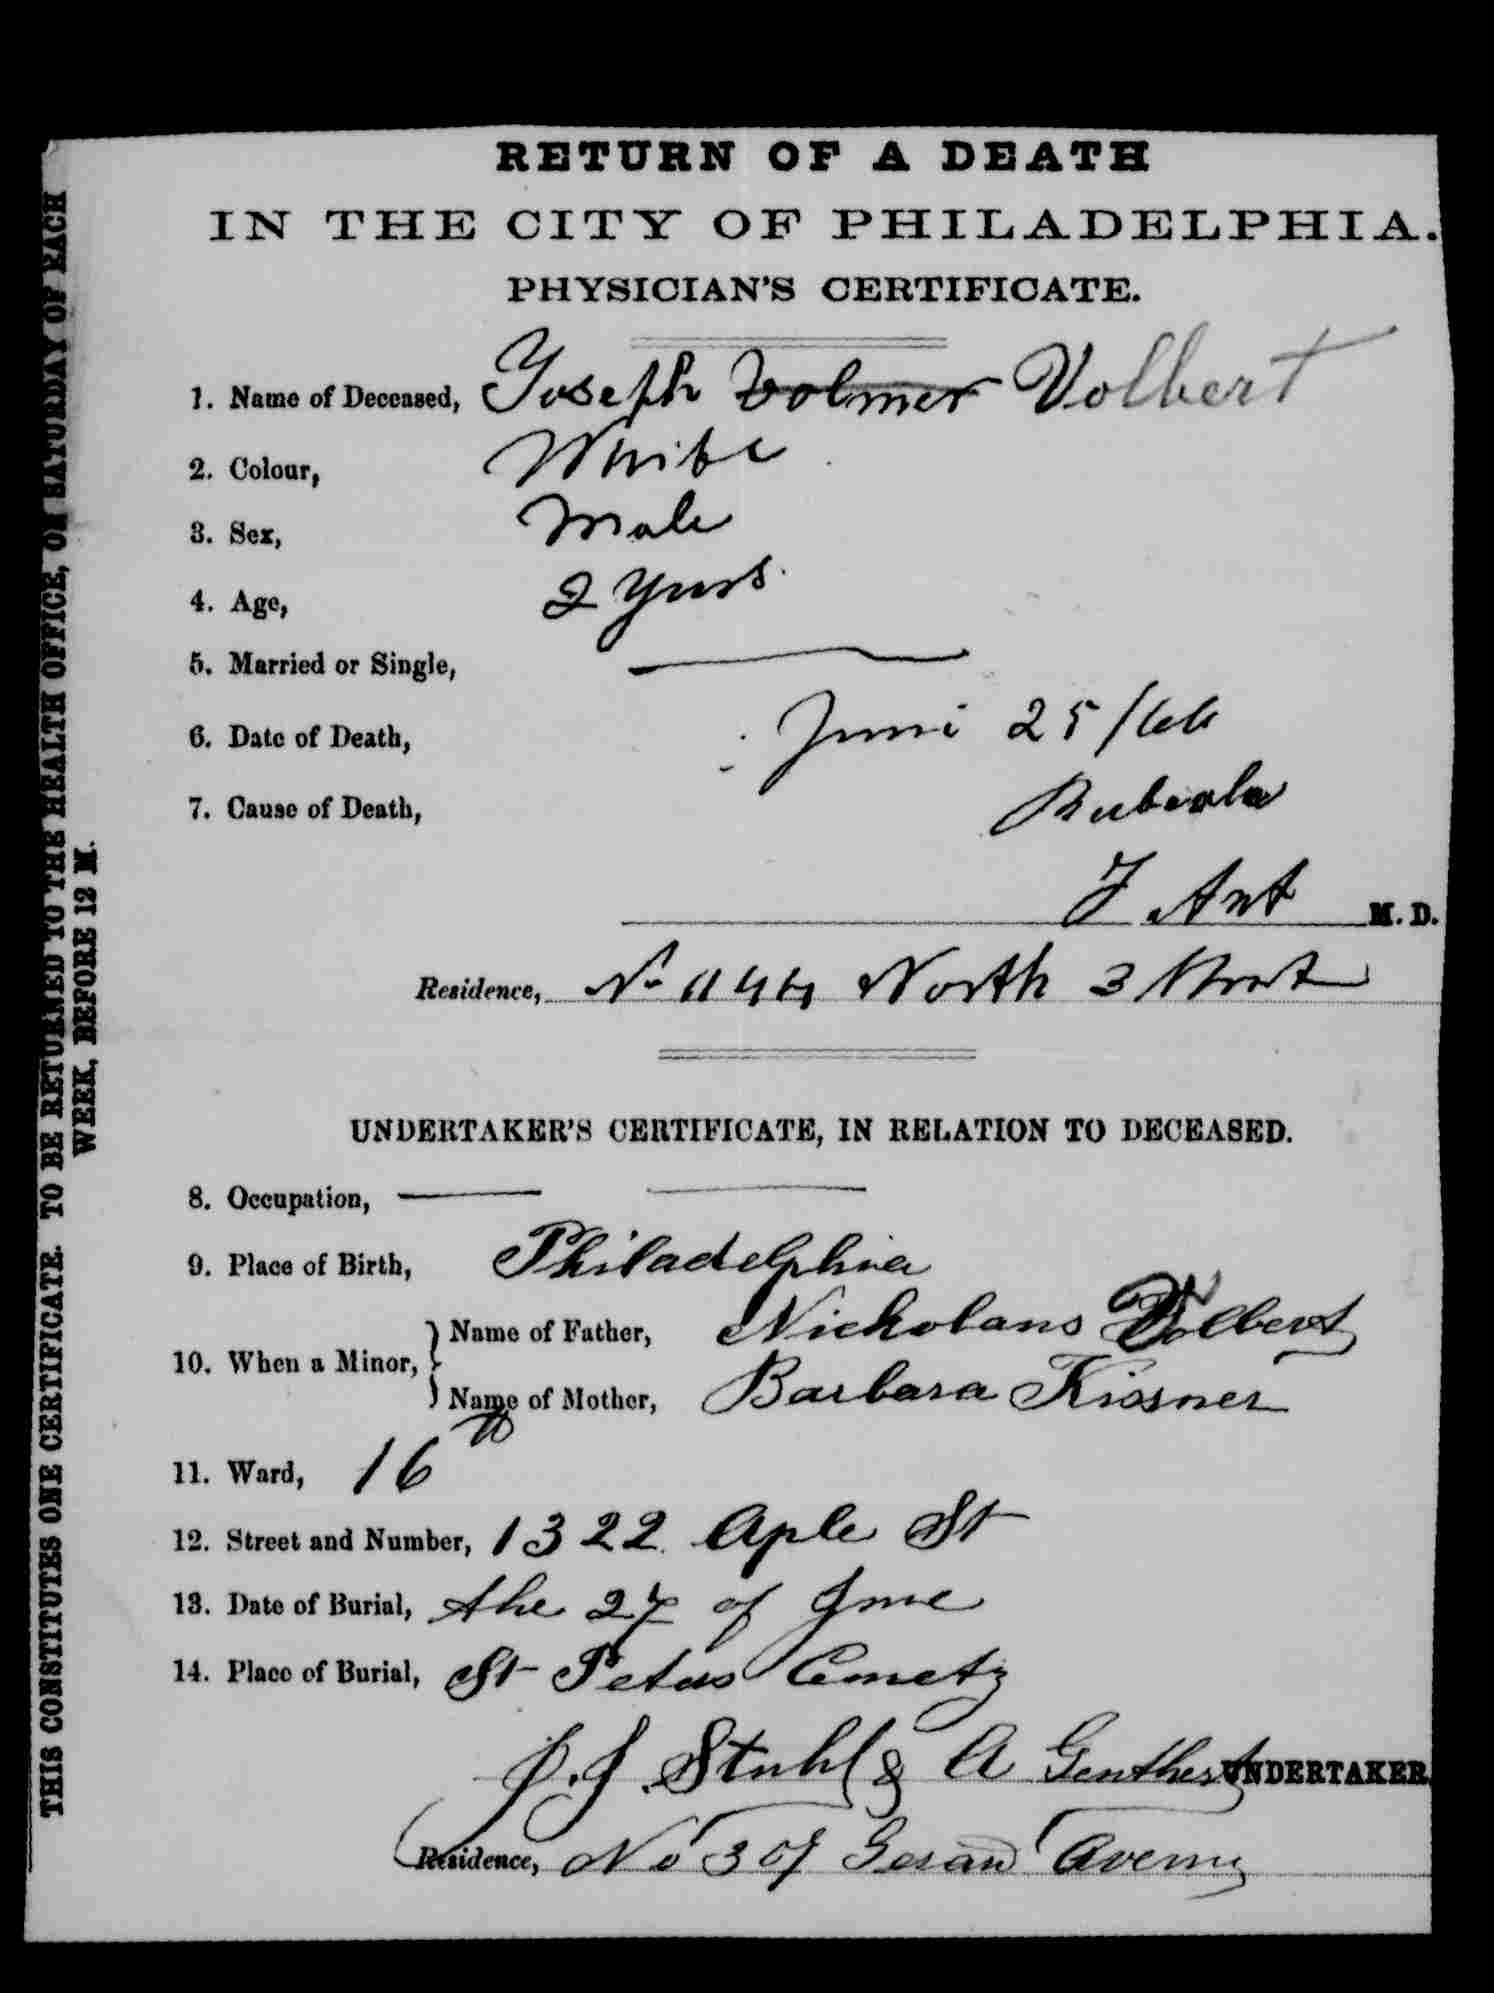 RETURN OF A DEATH
IN THE CITY OF PHILADELPHIA.
PHYSICIAN'S CERTIFICATE.
1. Name of Deceased, Joseph Volmer Volbert
2. Colour, White
3. Sex, Male
4. Age, 2 Years.
5. Married or Single,
6. Date of Death, Juni 25/66
7. Cause of Death, Rubeola
F. Ant M. D.
Residence, No 1144 North 3 Street
UNDERTAKER'S CERTIFICATE, IN RELATION TO DECEASED.
8. Occupation,
9. Place of Birth, Philadelphia
10. When a Minor, Name of Father, Nicholans Volbert
Name of Mother, Barbara Kissner
11. Ward, 16th
12. Street and Number, 1322 Aple St
13. Date of Burial, the 27 of June
14. Place of Burial, St Peters Cemety
J. J. Stuhl & A Genthert UNDERTAKER
Residence, No 307 Gerard Avenu
THIS CONSTITUTES ONE CERTIFICATE. TO BE RETURNED TO THE HEALTH OFFICE, ON SATURDAY OF EACH
WEEK, BEFORE 12 M.